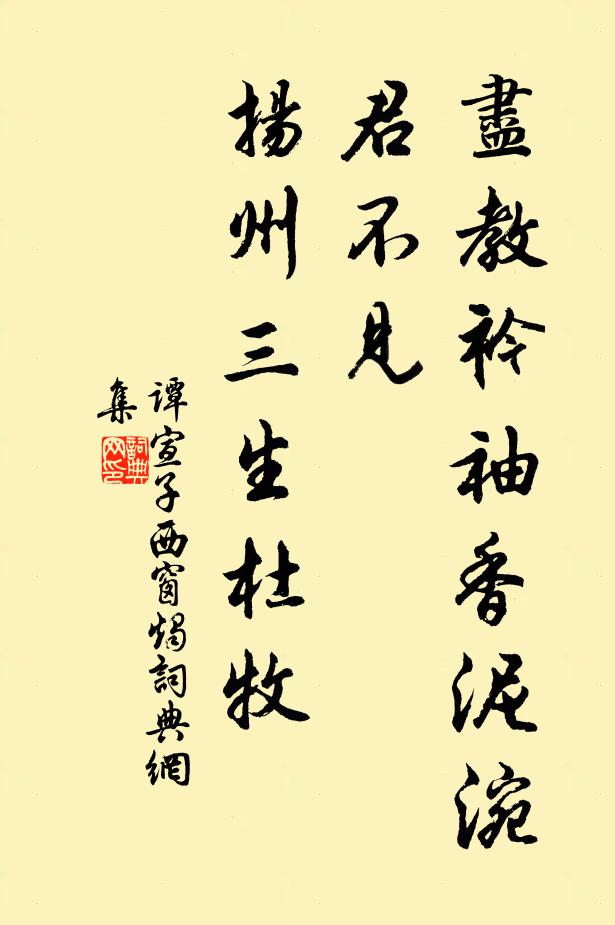 盡教衿袖香泥涴
君不見
揚州三生杜牧
譚宣子西窗燭詞典網
集
詞典
网印